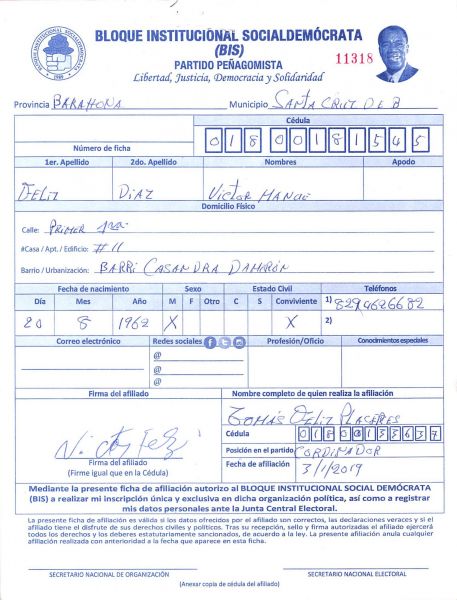 BLOQUE INSTITUCIONAL SOCIALDEMÓCRATA
(BIS)
PARTIDO PEÑAGOMISTA
11318
Libertad, Justicia, Democracia y Solidaridad
Provincia BARAHONA Municipio SANTA CRUZ DE B
Cédula
Número de ficha 01800181545
1er. Apellido 2do. Apellido Nombres Apodo
FELIZ DIAZ VICTOR MANUE
Domicilio Físico
Calle: PRIMER 1ra.
#Casa / Apt. / Edificio: #11
Barrio / Urbanización: BARRI CASANDRA DAMIRÓN
Fecha de nacimiento Sexo Estado Civil Teléfonos
Día Mes Año M F Otro C S Conviviente 1) 829 4626682
20 8 1962 X X 2)
Correo electrónico Redes sociales Profesión/Oficio Conocimientos especiales
@
@
@
Firma del afiliado Nombre completo de quien realiza la afiliación
TOMÁS FELIZ PLACERES
Cédula 01800133637
Firma del afiliado Posición en el partido CORDINADOR
(Firme igual que en la Cédula) Fecha de afiliación 3/1/2019
Mediante la presente ficha de afiliación autorizo al BLOQUE INSTITUCIONAL SOCIAL DEMÓCRATA
(BIS) a realizar mi inscripción única y exclusiva en dicha organización política, así como a registrar
mis datos personales ante la Junta Central Electoral.
La presente ficha de afiliación es válida si los datos ofrecidos por el afiliado son correctos, las declaraciones veraces y si el
afiliado tiene el disfrute de sus derechos civiles y políticos. Tras su recepción, sello y firma autorizados el afiliado ejercerá
todos los derechos y los deberes estatutariamente sancionados, de acuerdo a la ley. La presente afiliación anula cualquier
afiliación realizada con anterioridad a la fecha que aparece en esta ficha.
SECRETARIO NACIONAL DE ORGANIZACIÓN SECRETARIO NACIONAL ELECTORAL
(Anexar copia de cédula del afiliado)